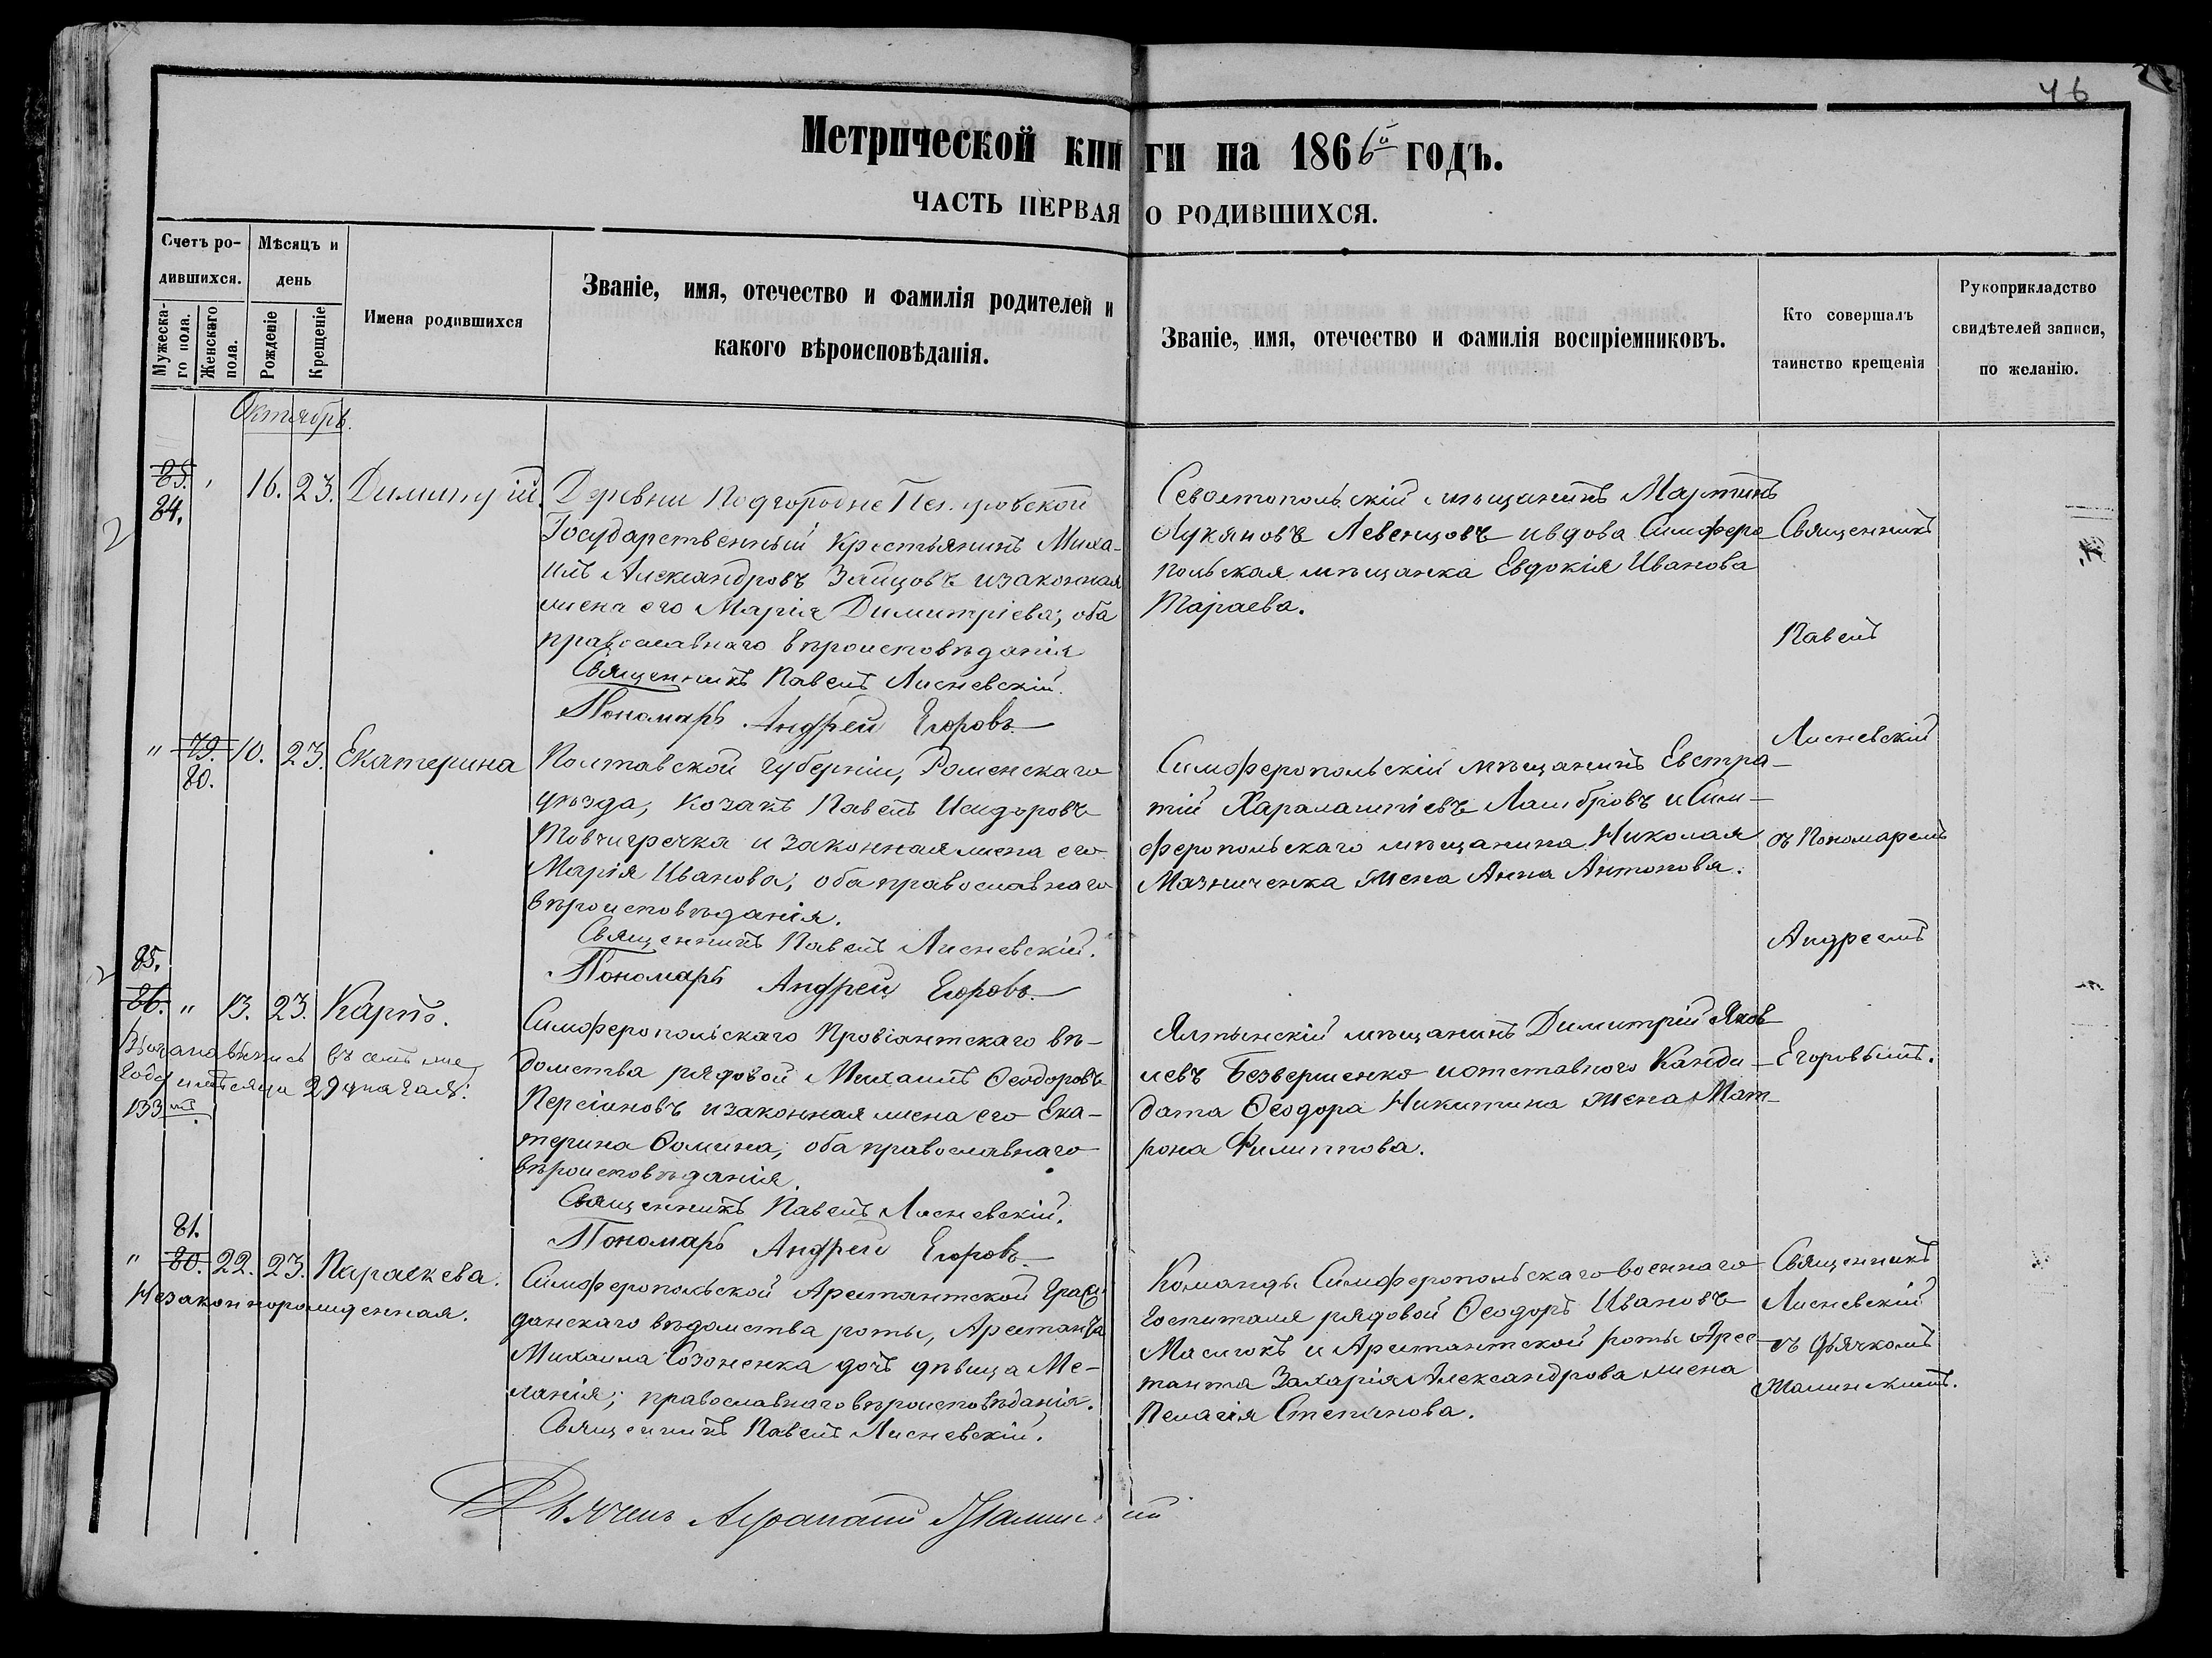 46
Метрической книги на 1866й годъ.
ЧАСТЬ ПЕРВАЯ О РОДИВШИХСЯ.
Счетъ родившихся.
Мужескаго пола.
Женскаго пола.
Мѣсяцъ и день
Рожденіе
Крещеніе
Имена родившихся
Званіе, имя, отечество и фамилія родителей и
какого вѣроисповѣданія.
Званіе, имя, отечество и фамилія воспріемниковъ.
Кто совершалъ
таинство крещенія
Рукоприкладство
свидѣтелей записи,
по желанію.
Октябрь.
85.
84.
16. 23. Димитрій.
Деревни Подгородне Петровской
Государственный крестьянинъ Миха-
илъ Александровъ Зайцовъ и законная
жена его Марія Димитріева; оба
православнаго вѣроисповѣданія
Священникъ Павелъ Лисневскій.
Пономарь Андрей Егоровъ.
Севастопольскій мѣщанинъ Мартинъ
Лукяновъ Левенцовъ и вдова Симферо-
польская мѣщанка Евдокія Иванова
Тараева.
Священникъ
Павелъ
Лисневскій
съ Пономаремъ
Андреемъ
Егоровымъ.
" 79. 10. 23. Екатерина
80.
Полтавской губерніи, Роменскаго
уѣзда, козакъ Павелъ Исидоровъ
Товчигречка и законная жена его
Марія Иванова; оба православнаго
вѣроисповѣданія.
Священникъ Павелъ Лисневскій.
Пономарь Андрей Егоровъ.
Симферопольскій мѣщанинъ Евстра-
тій Харалампіевъ Ламбровъ и Сим-
феропольскаго мѣщанина Николая
Мазниченка жена Анна Антонова.
85.
86. " 13. 23. Карпъ.
въ семъ же
году мѣсяца 29 дня
133
Симферопольскаго Провіантскаго вѣ-
домства рядовой Михаилъ Ѳеодоровъ
Персіановъ и законная жена его Ека-
терина Ѳомина; оба православнаго
вѣроисповѣданія.
Священникъ Павелъ Лисневскій.
Пономарь Андрей Егоровъ.
Ялтынскій мѣщанинъ Димитрій Яков-
левъ Безвершенко и отставного Канди-
дата Ѳеодора Никитина жена Мат-
рона Филиппова.
81.
" 80. 22. 23. Параскева.
Незаконнорожденная.
Симферопольской Арестантской Граж-
данскаго вѣдомства роты, Арестанта
Михаила Созоненка дочь дѣвица Ме-
ланія; православнаго вѣроисповѣданія.
Священникъ Павелъ Лисневскій.
Команды Симферопольскаго военнаго
госпиталя рядовой Ѳеодоръ Ивановъ
Маслюкъ и Арестантской роты Арес-
танта Захарія Александрова жена
Пелагія Степанова.
Священникъ
Лисневскій
съ дьячкомъ
Жалинскимъ.
Дьячекъ